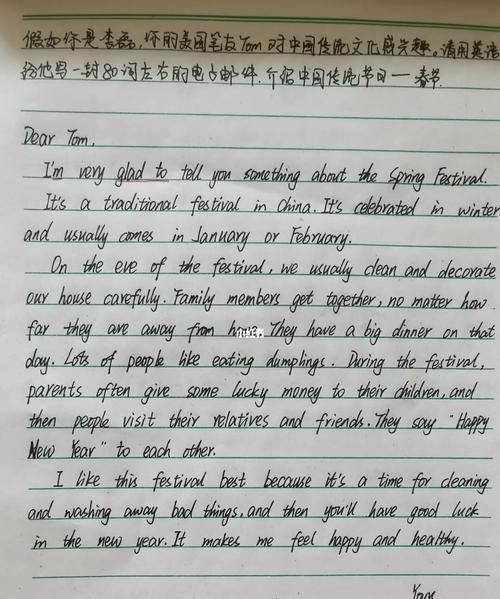 假如你是李磊,你的美国笔友Tom对中国传统文化感兴趣。请用英语
给他写一封80词左右的电子邮件,介绍中国传统节日—春节.
Dear Tom,
I'm very glad to tell you something about the Spring Festival.
It's a traditional festival in China. It's celebrated in winter
and usually comes in January or February.
On the eve of the festival, we usually clean and decorate
our house carefully. Family members get together, no matter how
far they are away from home. They have a big dinner on that
day. Lots of people like eating dumplings. During the festival,
parents often give some lucky money to their children, and
then people visit their relatives and friends. They say "Happy
New Year" to each other.
I like this festival best because it's a time for cleaning
and washing away bad things, and then you'll have good luck
in the new year. It makes me feel happy and healthy.